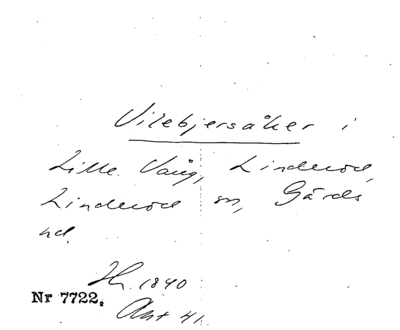 Vilebjersåker i
Lille Vång, Linderöd,
Linderöd sn, Gärds
hd.
Hr. 1840
Nr 7722.
Akt 41.